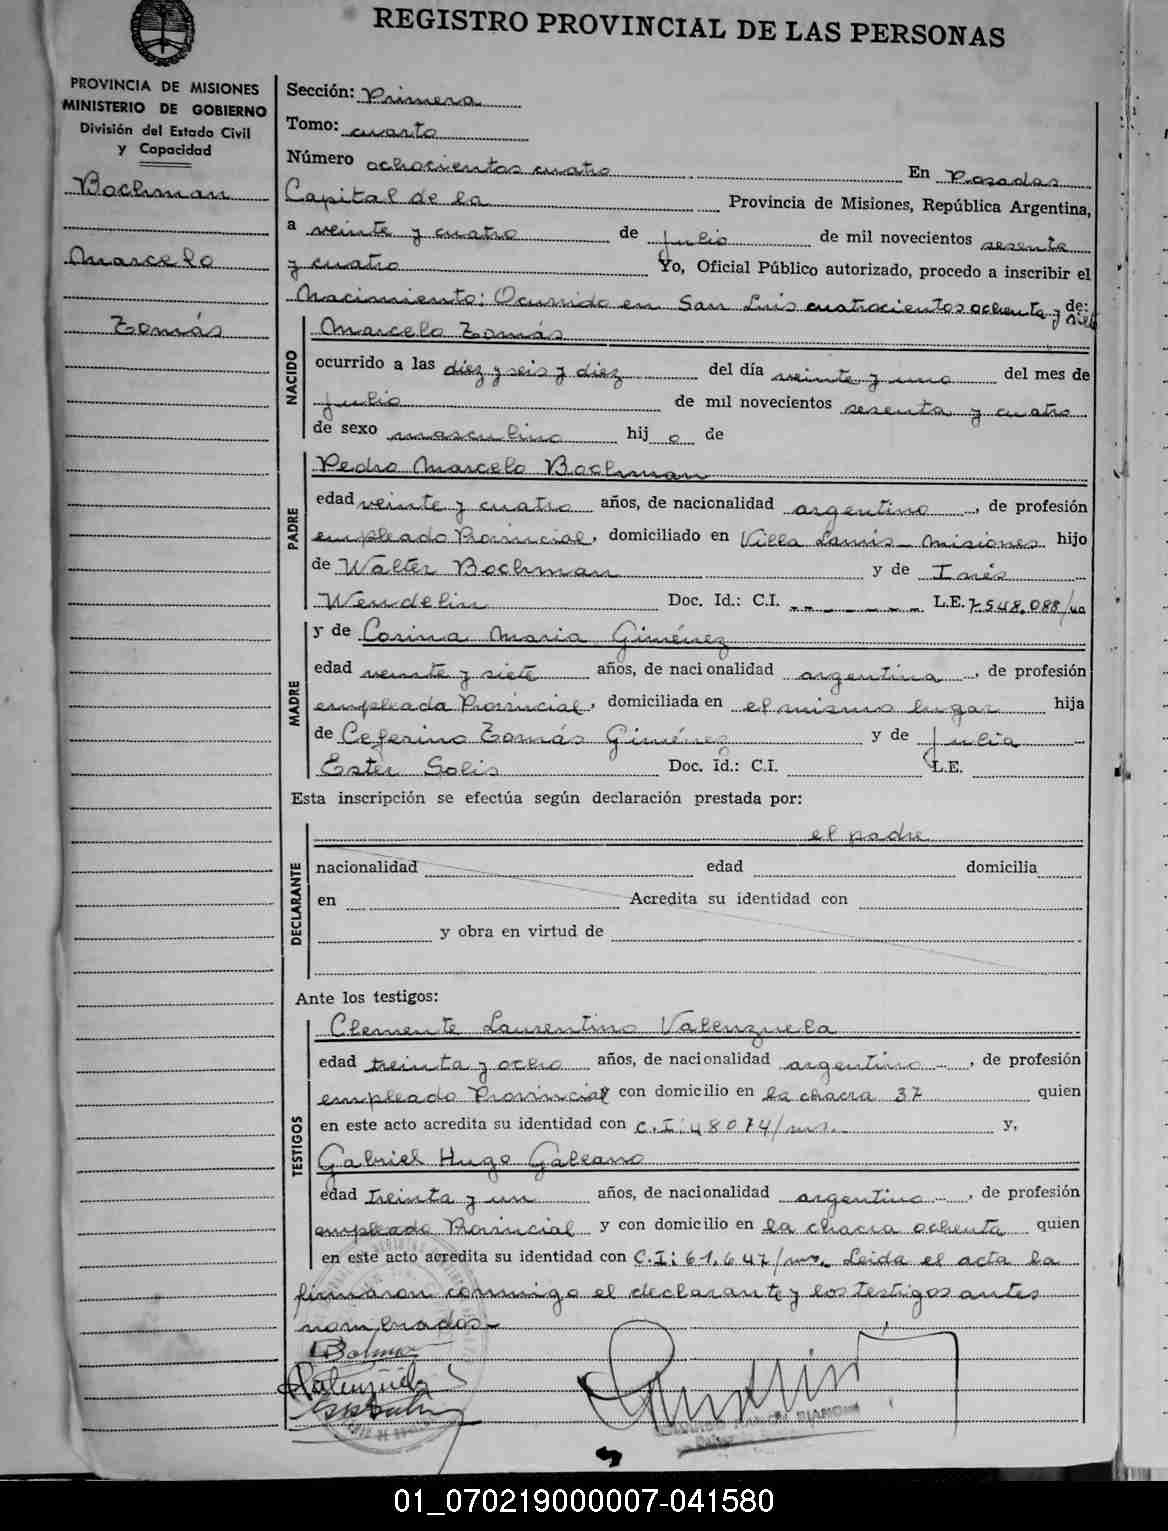 REGISTRO PROVINCIAL DE LAS PERSONAS
PROVINCIA DE MISIONES
MINISTERIO DE GOBIERNO
División del Estado Civil
y Capacidad
Bochman
Marcelo
Tomás
Sección: Primera
Tomo: cuarto
Número ochocientos cuatro En Posadas
Capital de la Provincia de Misiones, República Argentina,
a veinte y cuatro de julio de mil novecientos sesenta
y cuatro Yo, Oficial Público autorizado, procedo a inscribir el
Nacimiento: Ocurrido en San Luis cuatrocientos ochenta y siete de:
NACIDO
Marcelo Tomás
ocurrido a las diez y seis y diez del día veinte y uno del mes de
julio de mil novecientos sesenta y cuatro
de sexo masculino hij o de
PADRE
Pedro Marcelo Bochman
edad veinte y cuatro años, de nacionalidad argentino, de profesión
empleado Provincial, domiciliado en Villa Lanús - Misiones hijo
de Walter Bochman y de Inés
Wendelin Doc. Id.: C.I. L.E. 7.548.088/
MADRE
y de Corina Maria Giménez
edad veinte y siete años, de nacionalidad argentina, de profesión
empleada Provincial, domiciliada en el mismo lugar hija
de Ceferino Tomás Giménez y de Julia
Ester Solis Doc. Id.: C.I. L.E.
Esta inscripción se efectúa según declaración prestada por:
DECLARANTE
el padre
nacionalidad edad domicilia
en Acredita su identidad con
y obra en virtud de
Ante los testigos:
TESTIGOS
Clemente Laurentino Valenzuela
edad treinta y ocho años, de nacionalidad argentino, de profesión
empleado Provincial con domicilio en la chacra 37 quien
en este acto acredita su identidad con C.I: 48074/ms. y,
Gabriel Hugo Galeano
edad treinta y un años, de nacionalidad argentino, de profesión
empleado Provincial y con domicilio en la chacra ochenta quien
en este acto acredita su identidad con C.I: 61.647/ms. Leida el acta la
firmaron conmigo el declarante y los testigos antes
nombrados-
Valenzuela
01_070219000007-041580